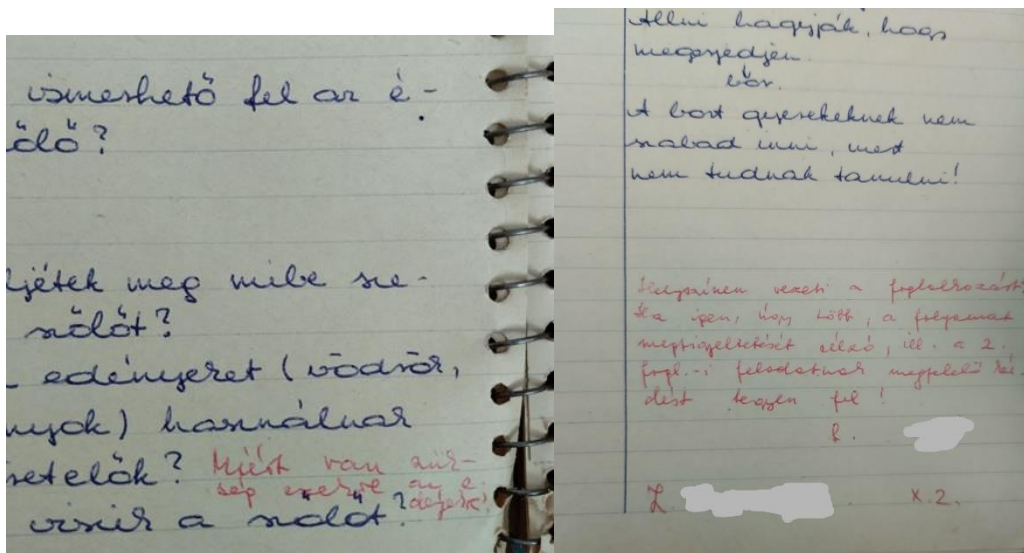 ismerhető fel az é-
ölő?
ljétek meg mibe sze-
szőlőt?
edényeket (vödrök,
nyok) használnak
setelők? Miért van szük-
ség ezekre az e-
dényekre?
viszik a szőlőt?
Állni hagyják, hogy
megerjedjen.
bor.
A bort gyerekeknek nem
szabad inni, mert
nem tudnak tanulni!
Helyszínen vezeti a foglalkozást?
Ha igen, úgy több, a folyamat
megfigyeltetését célzó, ill. a 2.
fogl.-i feladatnak megfelelő kér-
dést tegyen fel!
X. 2.